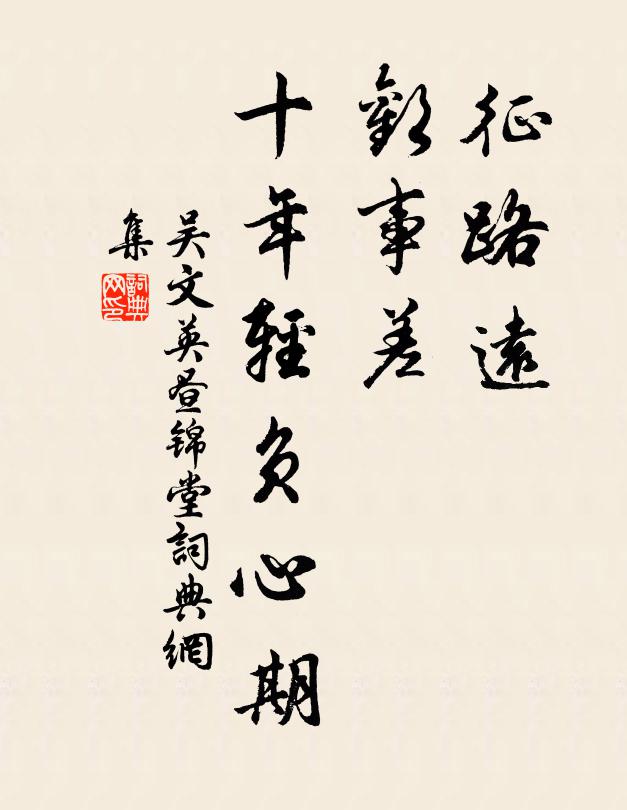 征路遠
歡事差
十年輕負心期
吴文英昼锦堂詞典網
集
詞典网印